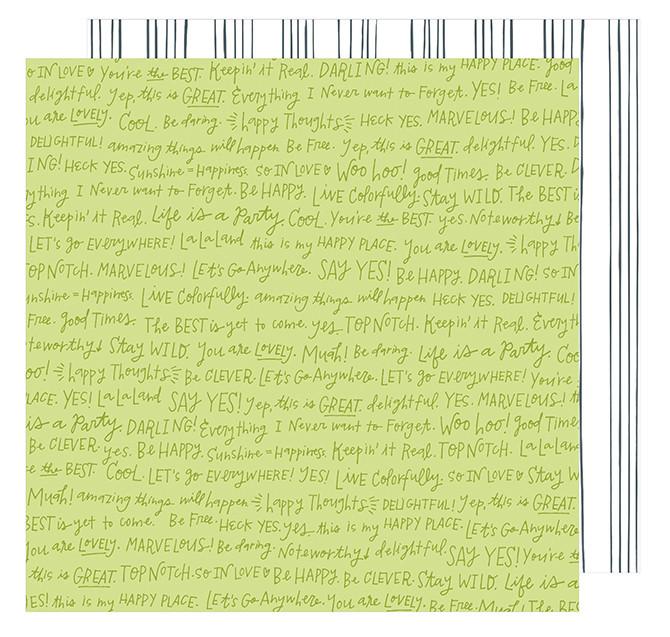 SO IN LOVE♡ You're the BEST. Keepin' it Real. DARLING! this is my HAPPY PLACE. Good
delightful. Yep, this is GREAT. Everything I Never want to Forget. YES! Be Free. La
You are LOVELY. COOL. Be daring. happy Thoughts HECK YES. MARVELOUS! Be HAPP
DELIGHTFUL! amazing things will happen Be Free. Yep, this is GREAT. delightful. YES. D
ING! HECK YES. Sunshine = Happiness. SO IN LOVE♡ Woo hoo! good Times. Be CLEVER. D
ything I Never want to Forget. Be HAPPY. LiVE Colorfully. Stay WILD. The BEST i
s. Keepin' it Real. Life is a Party. COOL. You're the BEST. yes. Noteworthy! Be
LET's go EVERYWHERE! LaLaLand this is my HAPPY PLACE. You are LOVELY. happy Th
TOP NOTCH. MARVELOUS! Let's Go Anywhere. SAY YES! Be HAPPY. DARLING! SO IN
unshine = Happiness. LiVE Colorfully. amazing things will happen HECK YES. DELIGHTFUL!
Free. good Times. The BEST is yet to come. yes. TOP NOTCH. Keepin' it Real. Everyth
teworthy! Stay WILD. You are LOVELY. Muah! Be daring. Life is a Party. Coo
oo! happy Thoughts Be CLEVER. Let's Go Anywhere. LET's go EVERYWHERE! You're
LACE. YES! LaLaLand SAY YES! Yep, this is GREAT. delightful. YES. MARVELOUS!
is a Party. DARLING! Everything I Never want to Forget. Woo hoo! good Time
Be CLEVER. yes. Be HAPPY. Sunshine = Happiness Keepin' it Real. TOP NOTCH. LaLaLan
e the BEST. COOL. LET's go EVERYWHERE! YES! LiVE Colorfully. SO IN LOVE♡ Stay W
Muah! amazing things will happen happy Thoughts DELIGHTFUL! Yep, this is GREAT.
BEST is yet to come. Be Free. HECK YES. yes. this is my HAPPY PLACE. Let's Go Anywhere
You are LOVELY. MARVELOUS! Be daring. Noteworthy! delightful. SAY YES! You're t
this is GREAT. TOP NOTCH. SO IN LOVE♡ Be HAPPY. Be CLEVER. Stay WILD. Life is a
YES! this is my HAPPY PLACE. Let's Go Anywhere. You are LOVELY. Be Free. Muah! The BES